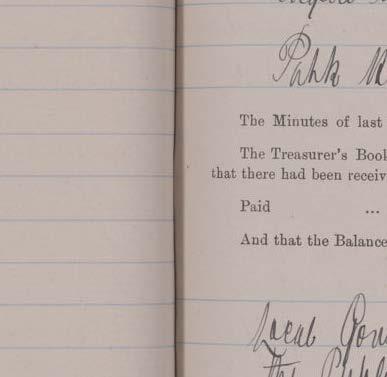 Pahk
The Minutes of last
The Treasurer's Book
that there had been receiv
Paid ...
And that the Balance
Local Gov
The Publ